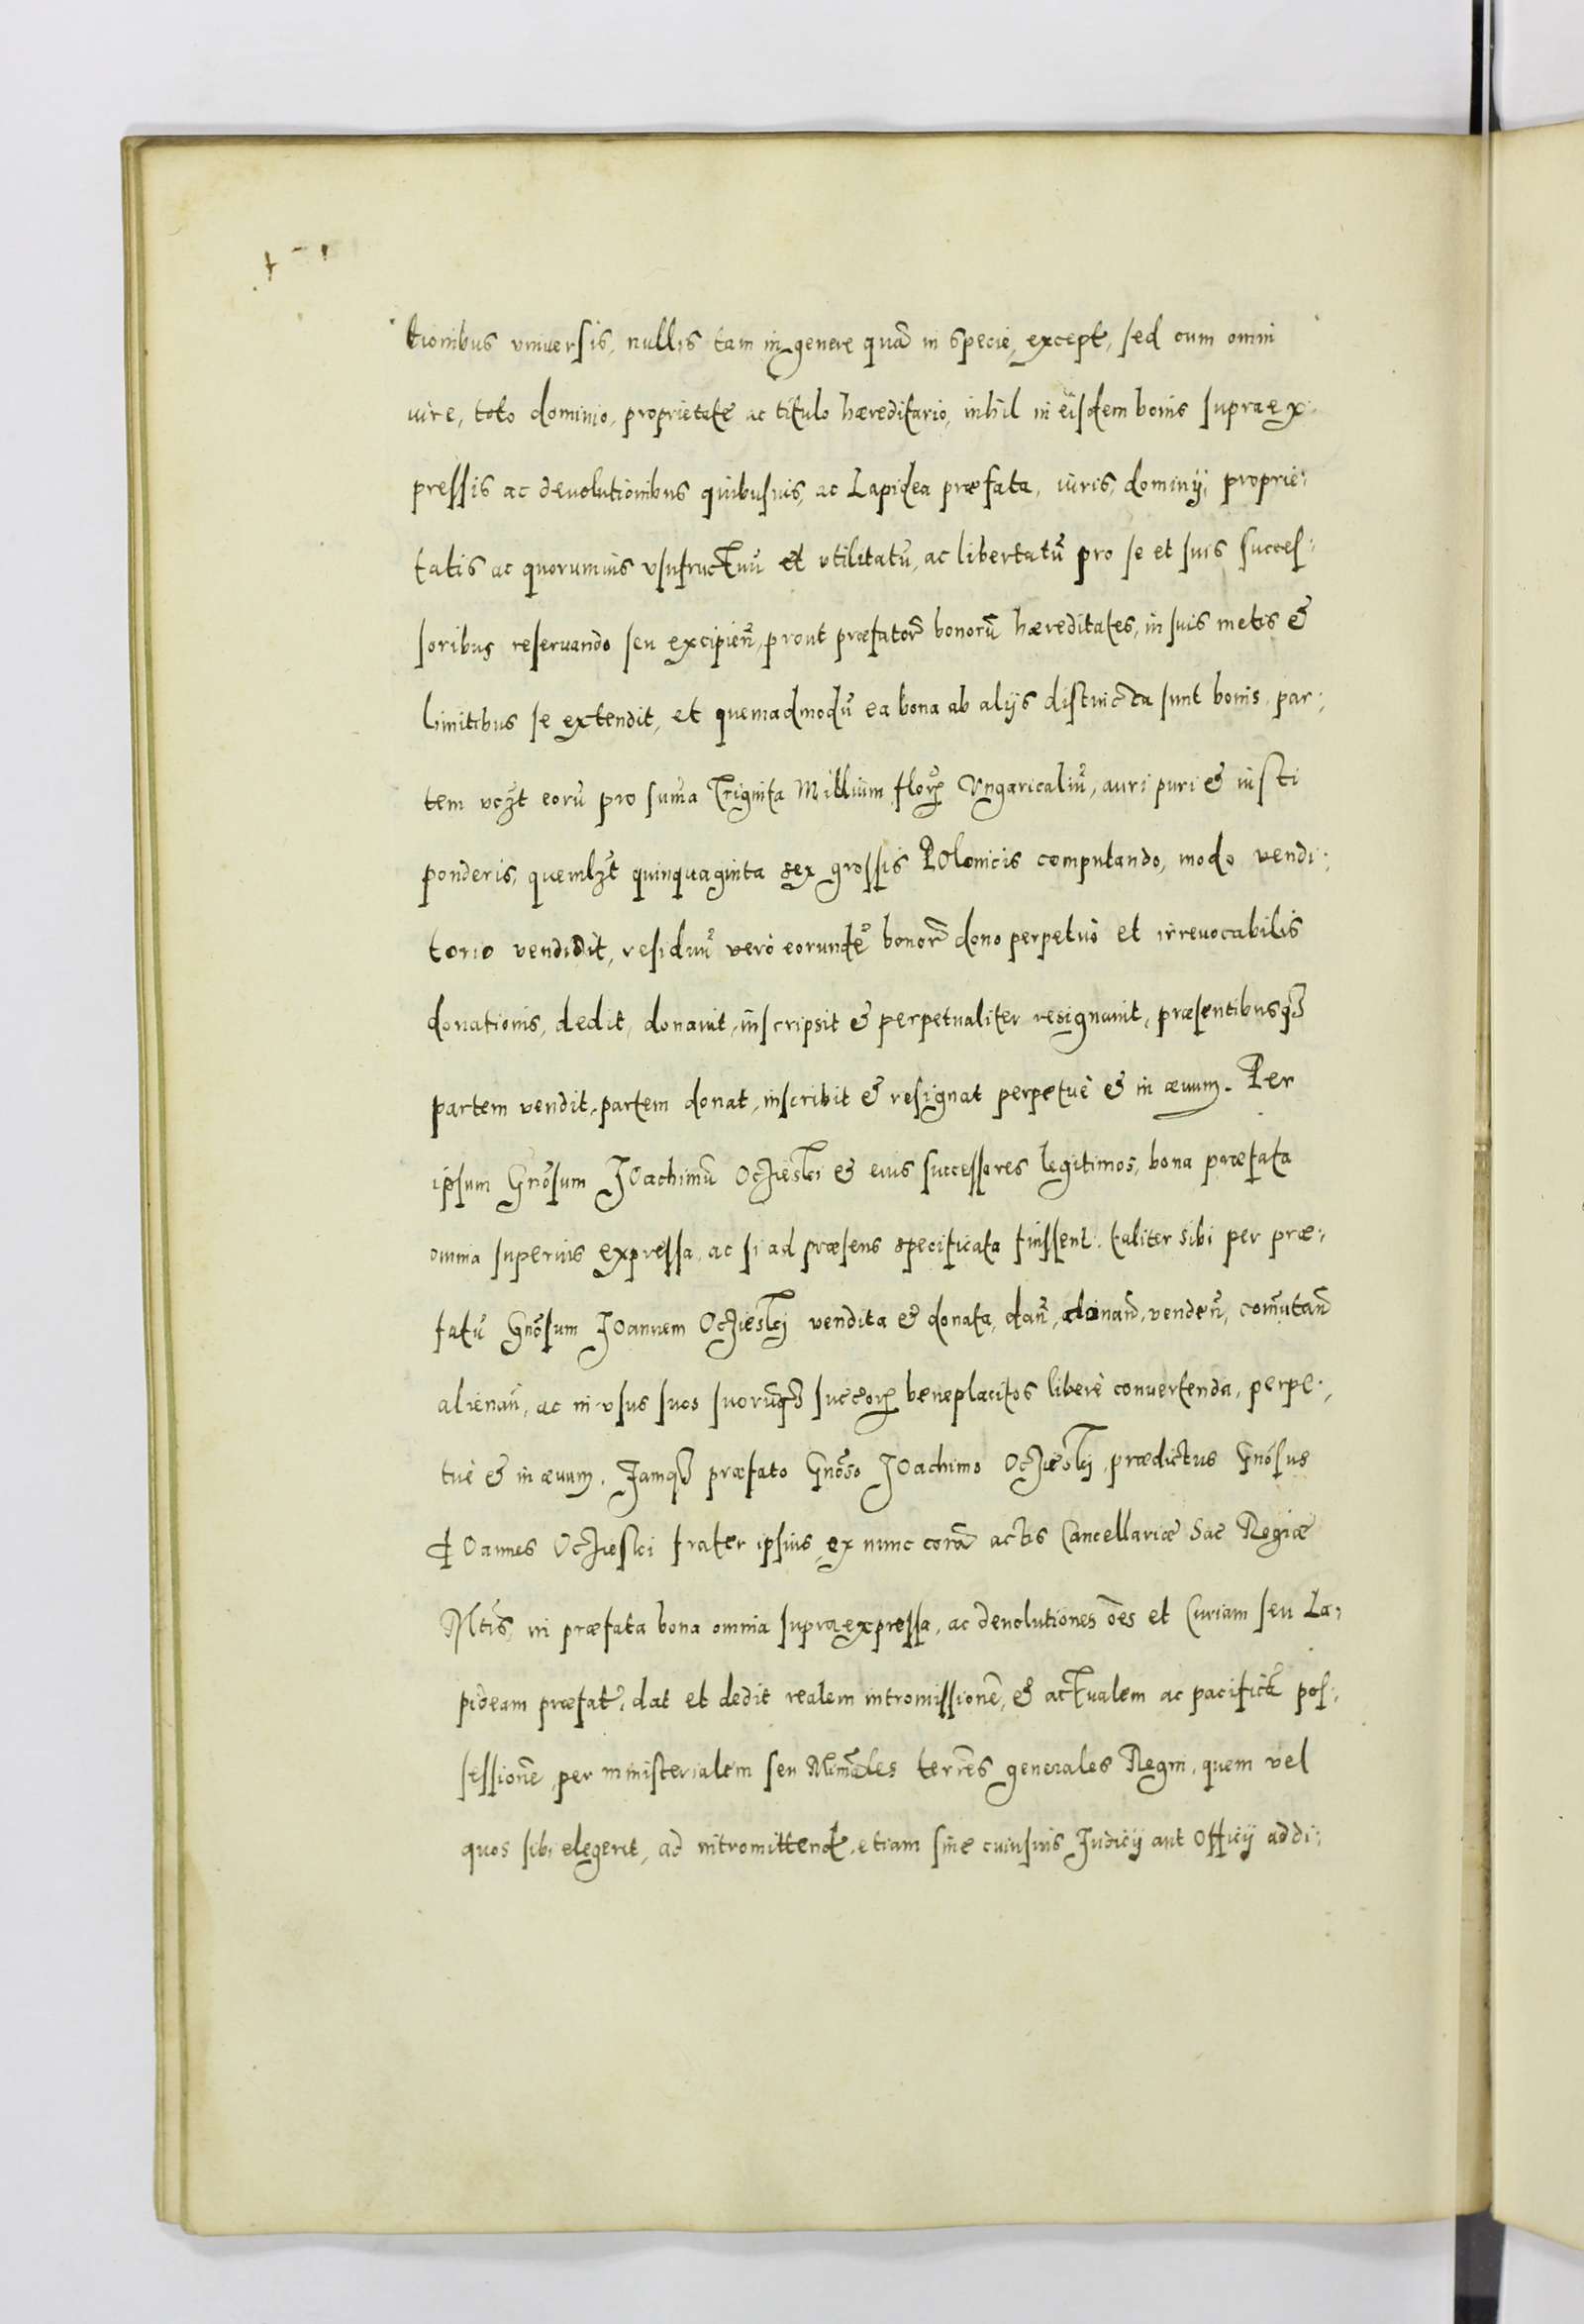 tionibus vniuersis, nullis tam in genere quã in specie, except̃, sed cum omni
iure, toto dominio, proprietate ac titulo hæreditario, nihil in eisdem bonis supraex:
pressis ac deuolutionibus quibusuis, ac Lapidea præfata, iuris, dominij, proprie:
tatis ac quorumuis vsufructuũ et vtilitatũ, ac libertatũ pro se et suis succes:
soribus reseruando seu excipieñ, prout præfator̃ bonorũ hæreditates, in suis metis &
limitibus se extendit, et quemadmodũ ea bona ab alijs distincta sunt bonis, par:
tem vcz̃t eorũ pro sum̃a Triginta Millium flor̃ Vngaricaliũ, auri puri & iusti
ponderis, quemlz̃t quinquaginta sex grossis POlonicis computando, modo vendi:
torio vendidit, residuũ verò eorundẽ bonor̃ dono perpetuò et irreuocabilis
donationis, dedit, donauit, inscripsit & perpetualiter resignauit, præsentibusq3
partem vendit, partem donat, inscribit & resignat perpetuè & in æuum. Per
ipsum Gnõsum JOachimũ Oczieski & eius successores legitimos, bona præfata
omnia superius expressa, ac si ad præsens specificata fuissent. taliter sibi per præ:
fatũ Gnõsum JOannem Oczieskj vendita & donata, dañ, donañ, vendeñ, com̃utañ
alienañ, ac in vsus suos suorũq3 succ̃or̃ beneplacitos liberè conuertenda, perpe:
tuè & in æuum. Jamq3 præfato Gnõso JOachimo Oczieskj, prædictus Gnõsus
JOannes Oczieski frater ipsius, ex nunc corã actis Cancellariæ Sac̃ Regiæ
Mtis̃, in præfata bona omnia supraexpressa, ac deuolutiones ões et Curiam seu La:
pideam præfat̃, dat et dedit realem intromissionẽ, & actualem ac pacificã pos:
sessionẽ per ministerialem seu Min̄ales terr̃es generales Regni, quem vel
quos sibi elegerit, ad intromittend̃, etiam sine cuiusuis Judicij aut Officij addi: